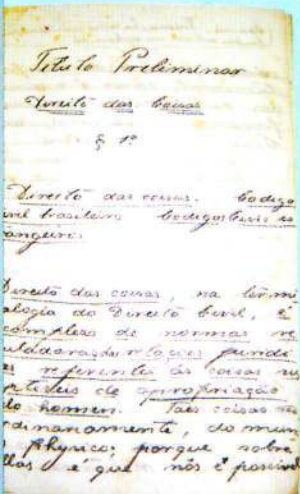 Titulo Preliminar
Direito das Cousas
§ 1º
Direito das cousas. Codigo
ivil brasileiro Codigos Civis es
angeiros
Direito das cousas, na termi
ologia do Direito Civil, é
complexo de normas re
uladoras das relações juridi
as referentes ás cousas sus
ptiveis de apropriação
elo homem. Taes cousas
dinariamente, do mun
physico; porque sobre
llas é que nós é possivel